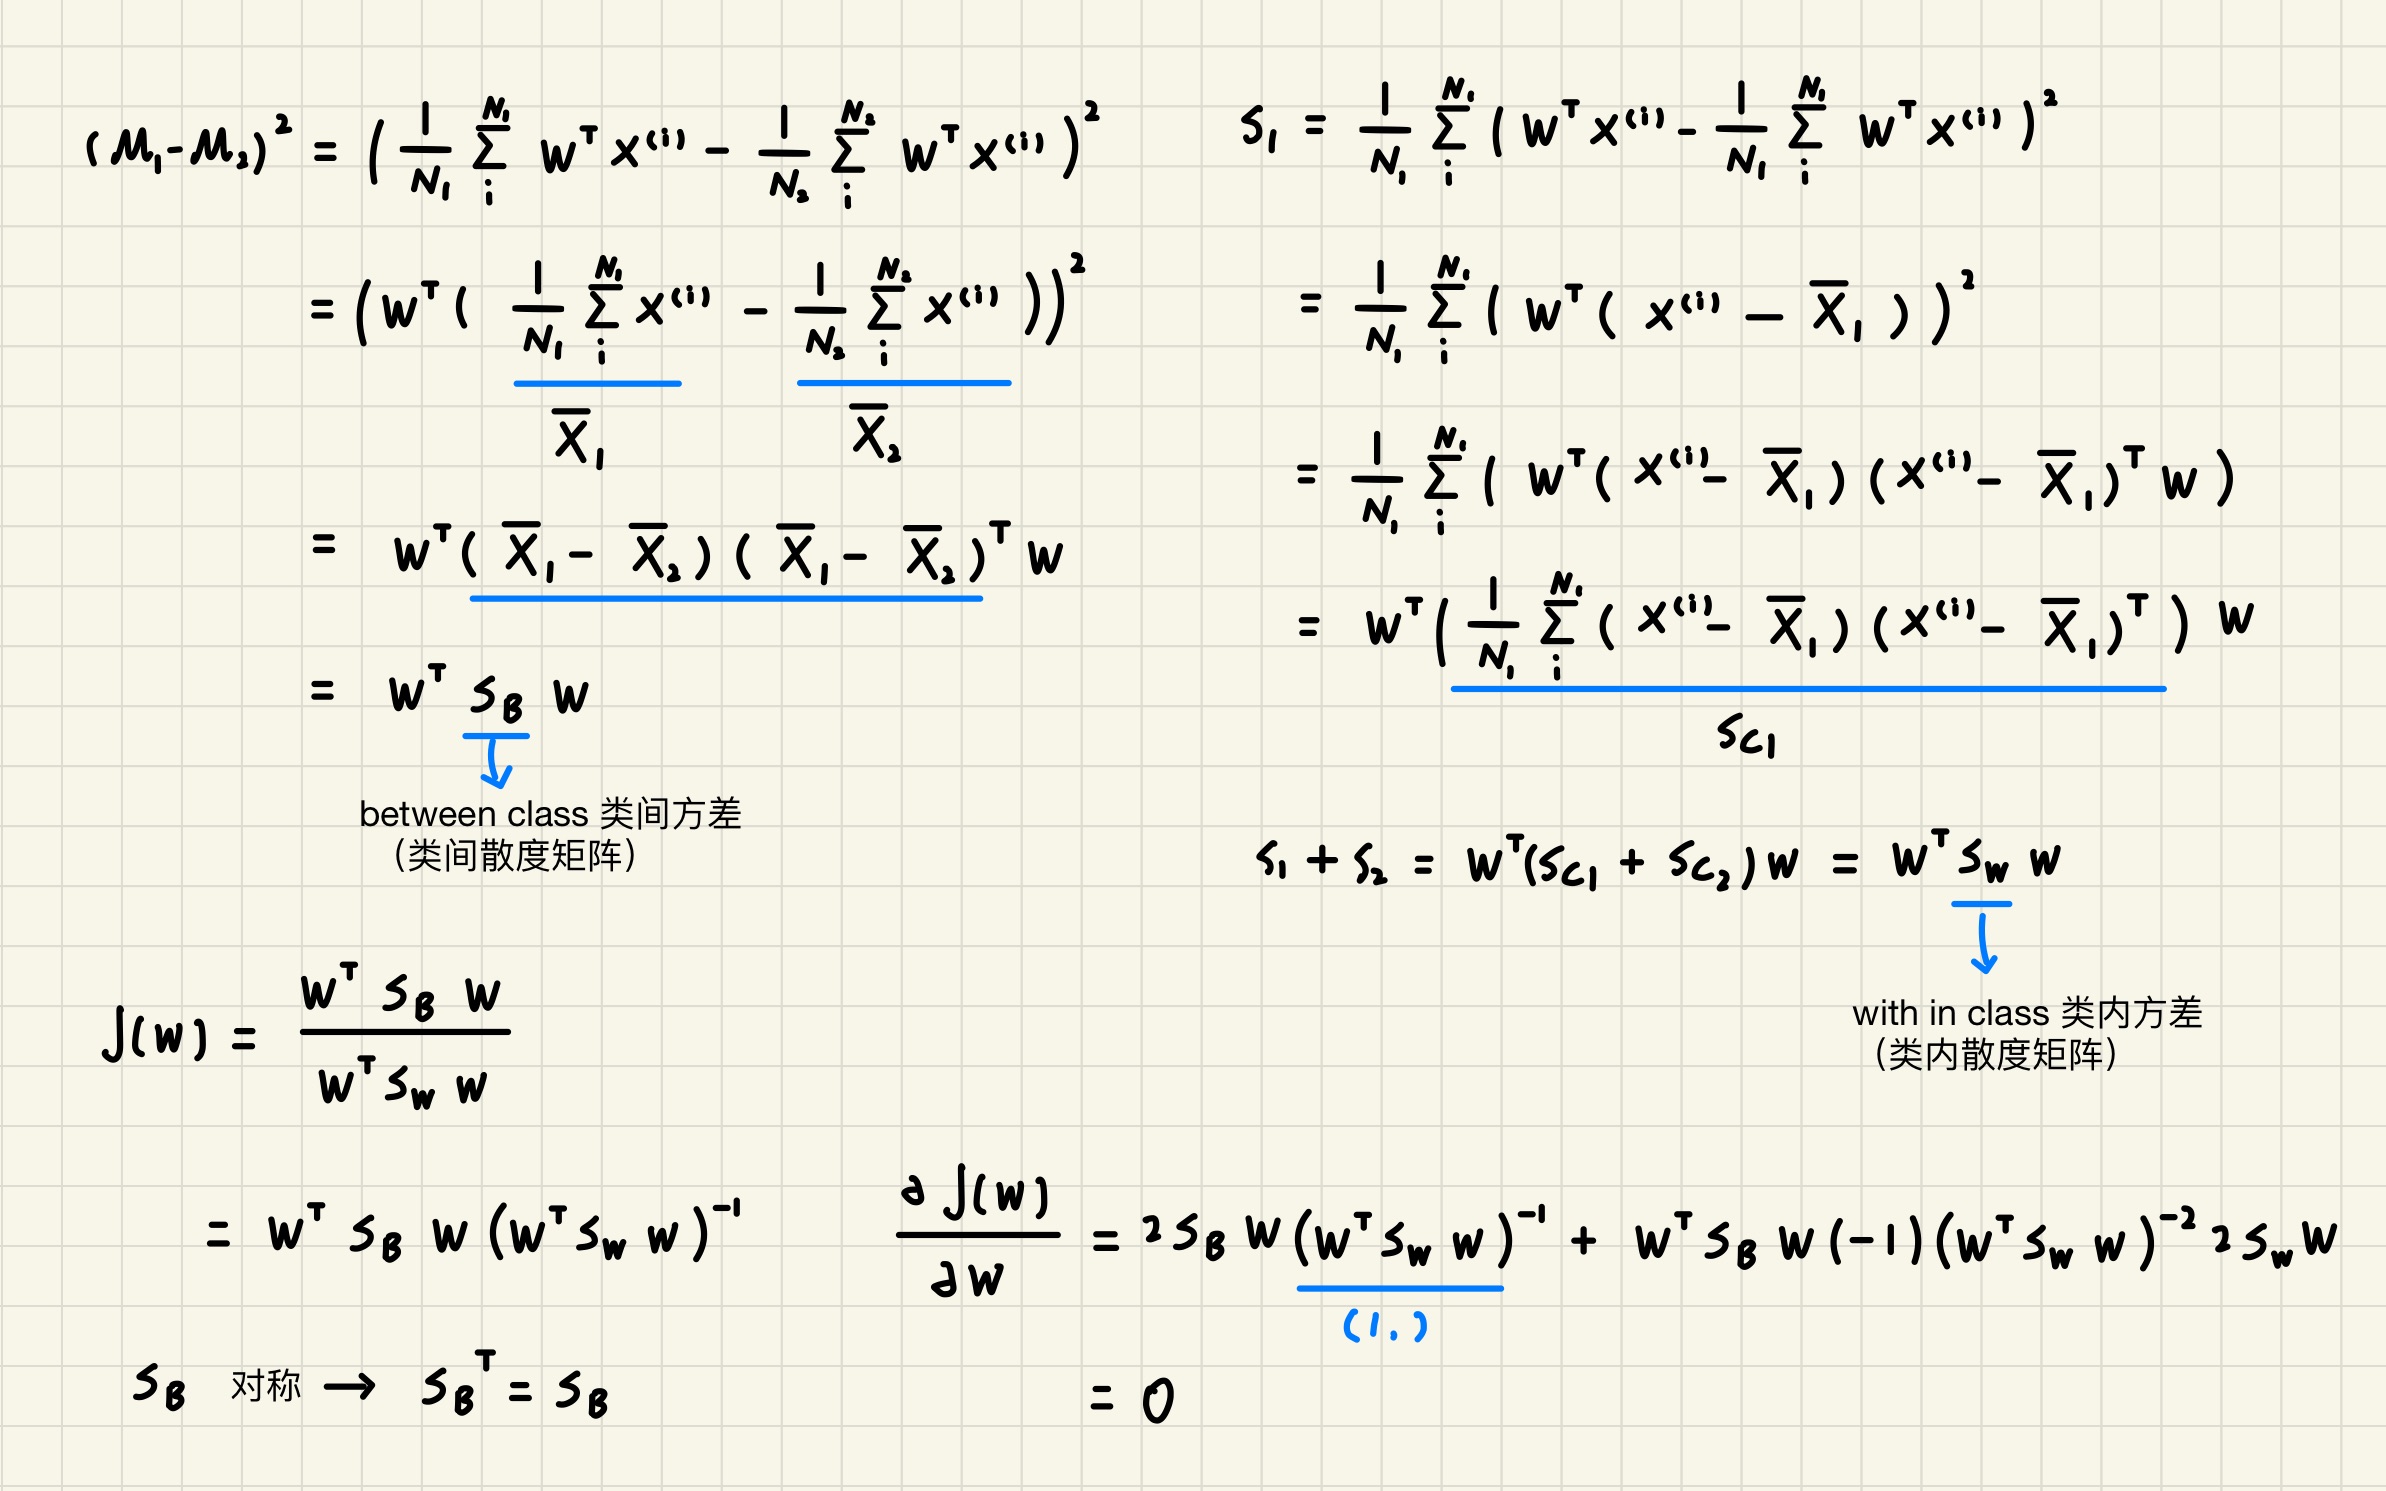 (μ₁-μ₂)² = (1/N₁ ∑ᵢ^N₁ Wᵀx⁽ⁱ⁾ - 1/N₂ ∑ᵢ^N₂ Wᵀx⁽ⁱ⁾)²
= (Wᵀ(1/N₁ ∑ᵢ^N₁ x⁽ⁱ⁾ - 1/N₂ ∑ᵢ^N₂ x⁽ⁱ⁾))²
X̅₁ X̅₂
= Wᵀ(X̅₁- X̅₂)(X̅₁- X̅₂)ᵀW
= Wᵀ S_B W
between class 类间方差
（类间散度矩阵）
S₁ = 1/N₁ ∑ᵢ^N₁ (Wᵀx⁽ⁱ⁾ - 1/N₁ ∑ᵢ^N₁ Wᵀx⁽ⁱ⁾)²
= 1/N₁ ∑ᵢ^N₁ (Wᵀ(x⁽ⁱ⁾ - X̅₁))²
= 1/N₁ ∑ᵢ^N₁ (Wᵀ(x⁽ⁱ⁾- X̅₁)(x⁽ⁱ⁾- X̅₁)ᵀW)
= Wᵀ(1/N₁ ∑ᵢ^N₁ (x⁽ⁱ⁾- X̅₁)(x⁽ⁱ⁾- X̅₁)ᵀ)W
S_C₁
S₁ + S₂ = Wᵀ(S_C₁ + S_C₂)W = Wᵀ S_W W
with in class 类内方差
（类内散度矩阵）
J(W) = Wᵀ S_B W / Wᵀ S_W W
= Wᵀ S_B W (Wᵀ S_W W)⁻¹
∂J(W)/∂W = 2 S_B W (Wᵀ S_W W)⁻¹ + Wᵀ S_B W (-1)(Wᵀ S_W W)⁻² 2 S_W W
(1.)
S_B 对称 → S_Bᵀ = S_B
= 0